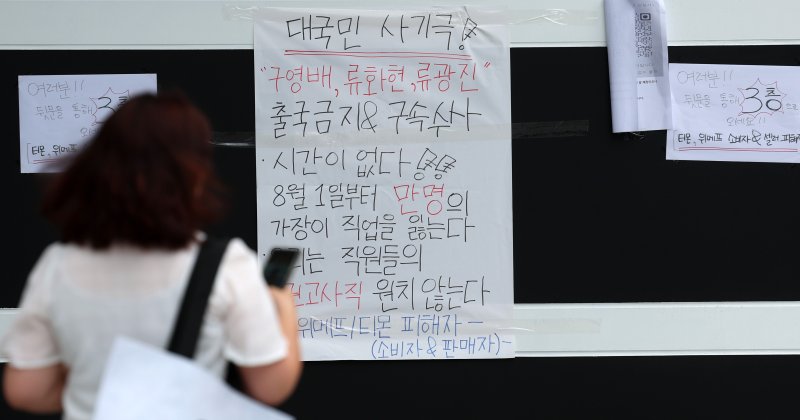 여러분!!
뒷문을 통해 3층
[티몬, 위메프
대국민 사기극!!
"구영배, 류화현, 류광진"
출국금지 & 구속수사
· 시간이 없다!!
8월 1일부터 만명의
가장이 직업을 잃는다
직원들의
권고사직 원치 않는다
위메프/티몬 피해자 -
(소비자 & 판매자) -
여러분!!
뒷문을 통해 3층으로
오세요!!
[티몬, 위메프 소비자 & 셀러 피해